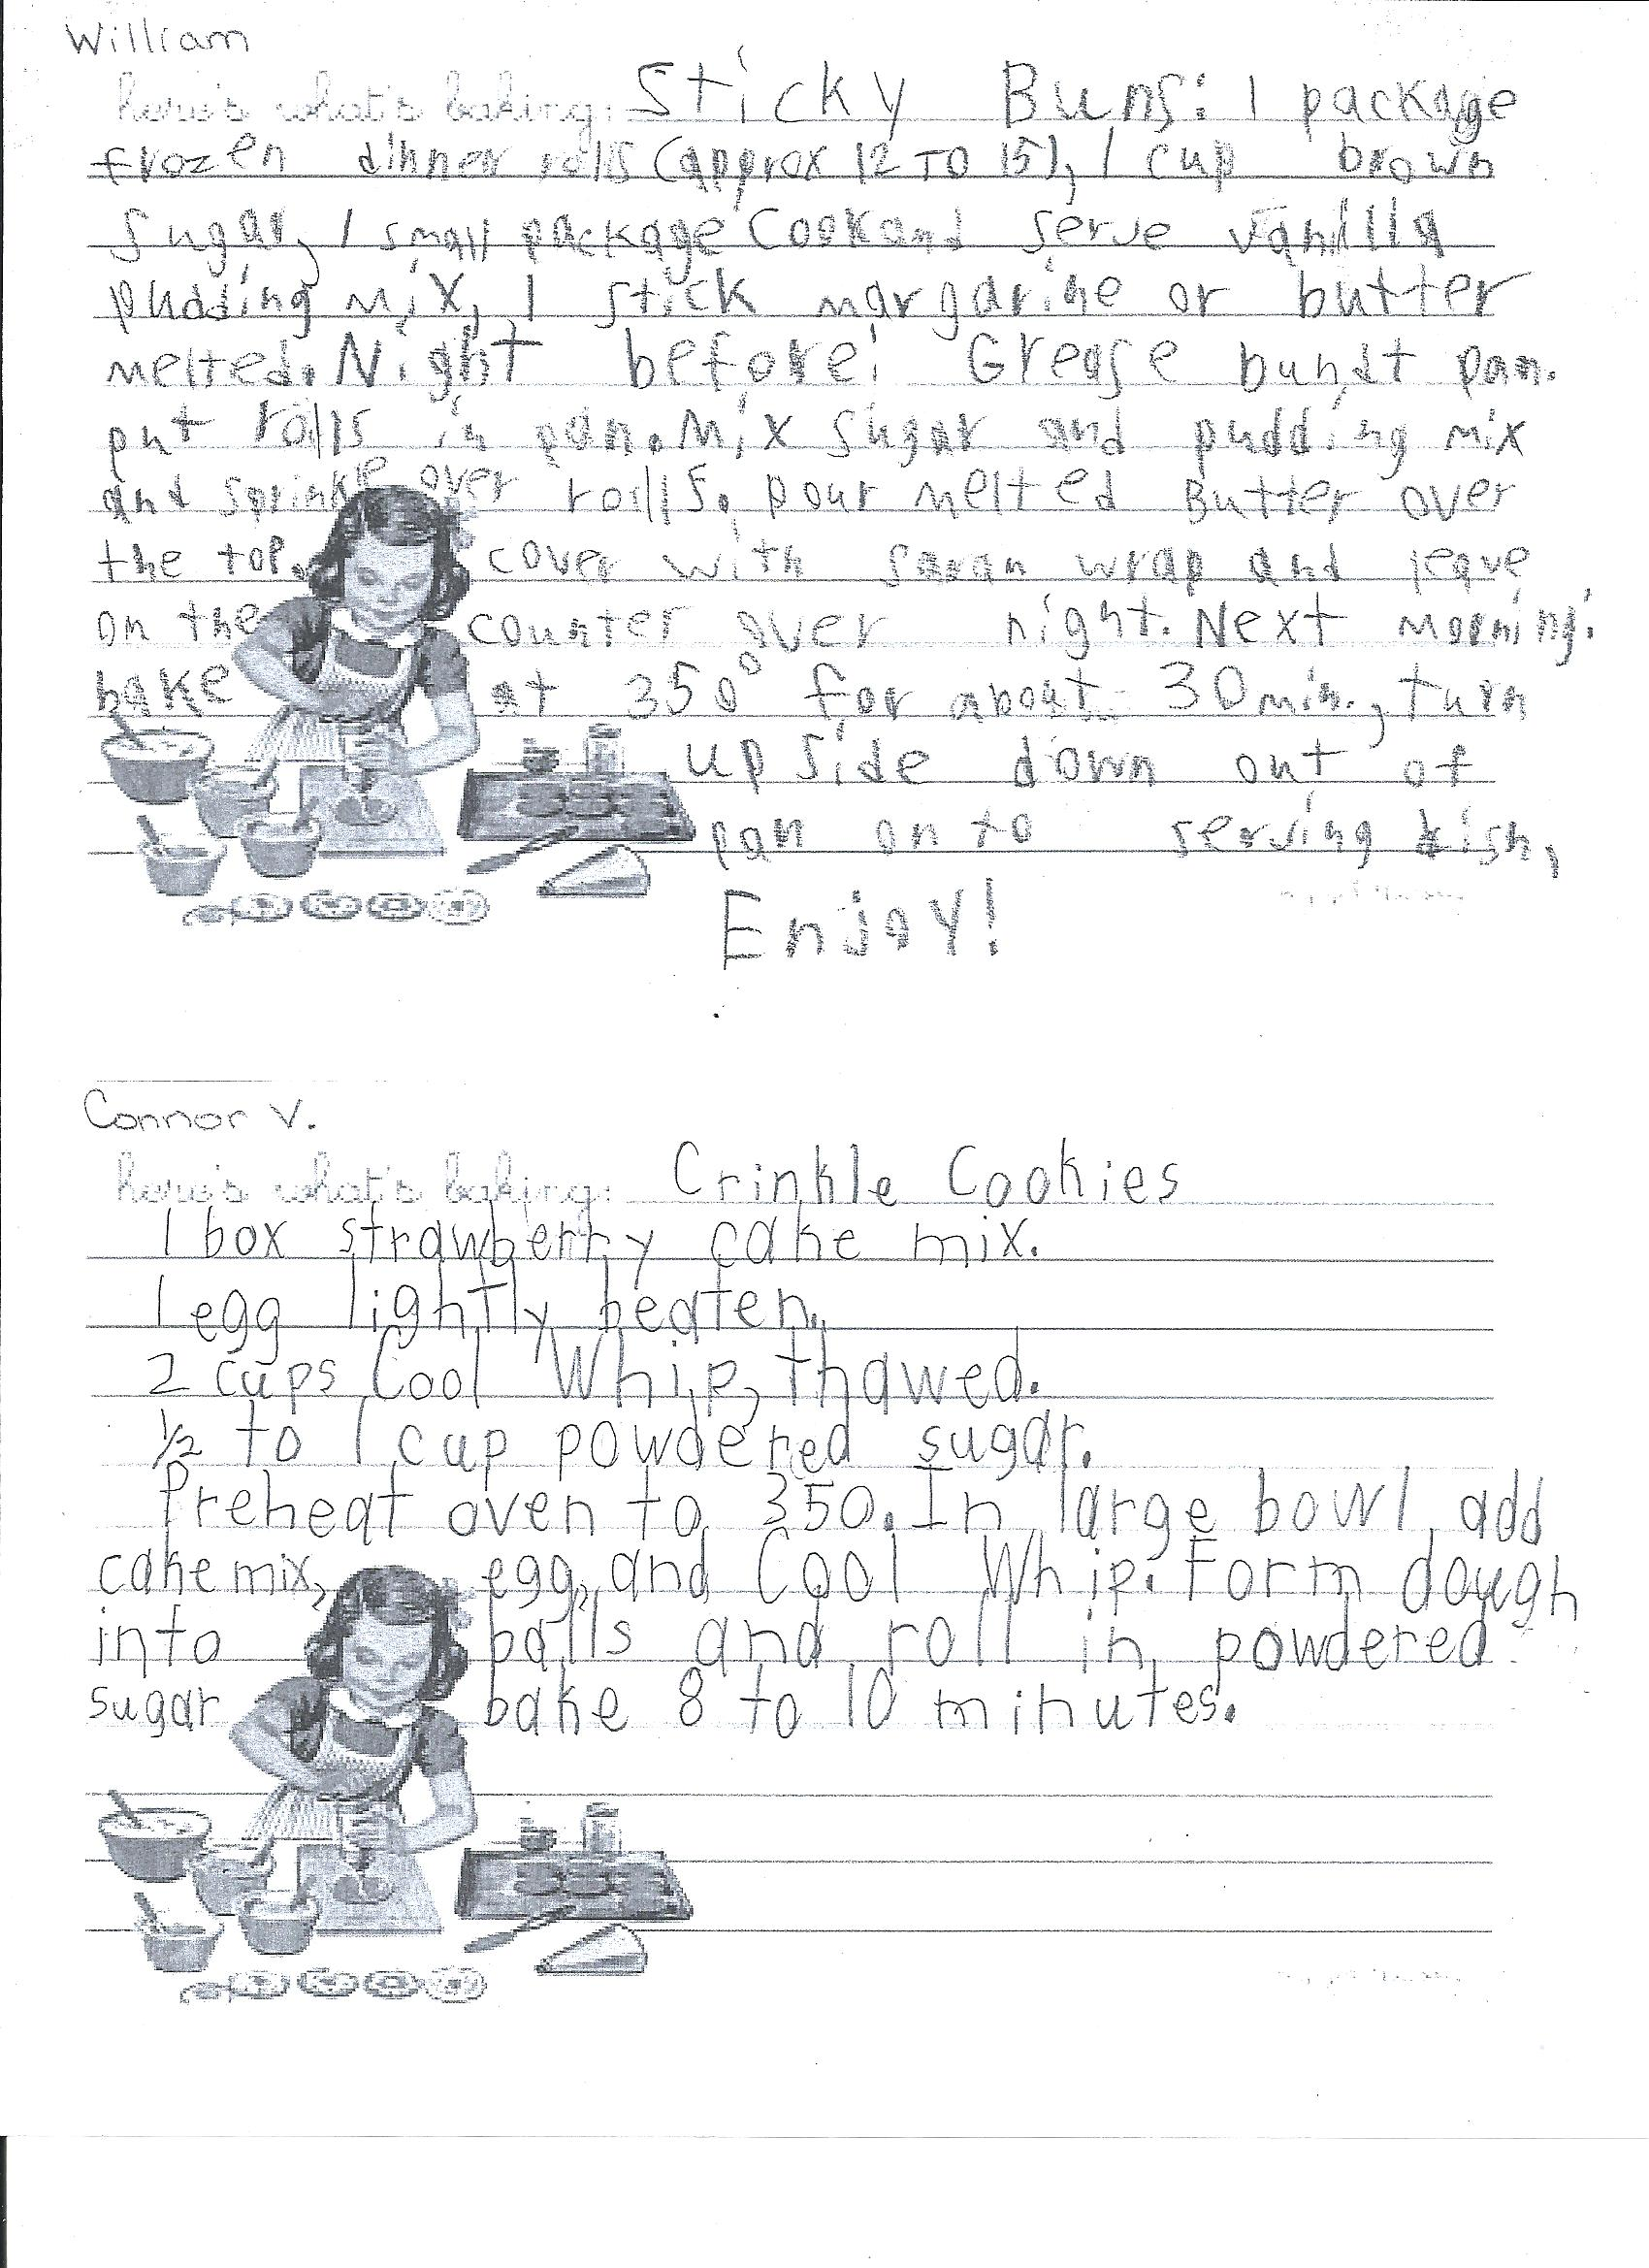 William
here's what's baking: Sticky Buns: 1 package
frozen dinner rolls (approx 12 TO 15), 1 cup brown
sugar, 1 small package Cook and serve vanilla
pudding mix, 1 stick margarine or butter
melted. Night before: Grease bundt pan.
put rolls in pan. Mix sugar and pudding mix
and sprinkle over rolls. pour melted Butter over
the top. cover with saran wrap and leave
on the counter over night. Next morning:
bake at 350° for about 30 min., turn
up side down out of
pan on to serving dish,
Enjoy!
Connor V.
here's what's baking: Crinkle Cookies
1 box strawberry cake mix.
1 egg lightly beaten.
2 cups Cool Whip, thawed.
1/2 to 1 cup powdered sugar.
Preheat oven to 350. In large bowl add
cake mix, egg, and Cool Whip. Form dough
into balls and roll in powdered
sugar bake 8 to 10 minutes.